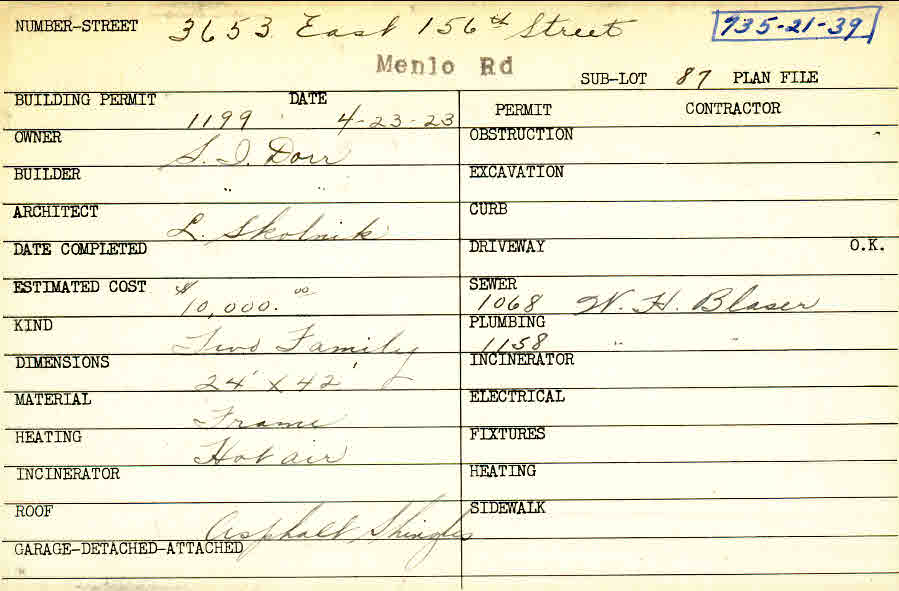 NUMBER-STREET 3653 East 156th Street 735-21-39
Menlo Rd
SUB-LOT 87 PLAN FILE
BUILDING PERMIT 1199 DATE 4-23-23
PERMIT CONTRACTOR
OWNER S. I. Dorr
OBSTRUCTION
BUILDER " "
EXCAVATION
ARCHITECT L. Skolnik
CURB
DATE COMPLETED
DRIVEWAY O.K.
ESTIMATED COST $10,000.00
SEWER 1068 W. H. Blaser
KIND Two Family
PLUMBING 1158 " "
DIMENSIONS 24' X 42'
INCINERATOR
MATERIAL Frame
ELECTRICAL
HEATING Hot air
FIXTURES
INCINERATOR
HEATING
ROOF Asphalt Shingles
SIDEWALK
GARAGE-DETACHED-ATTACHED